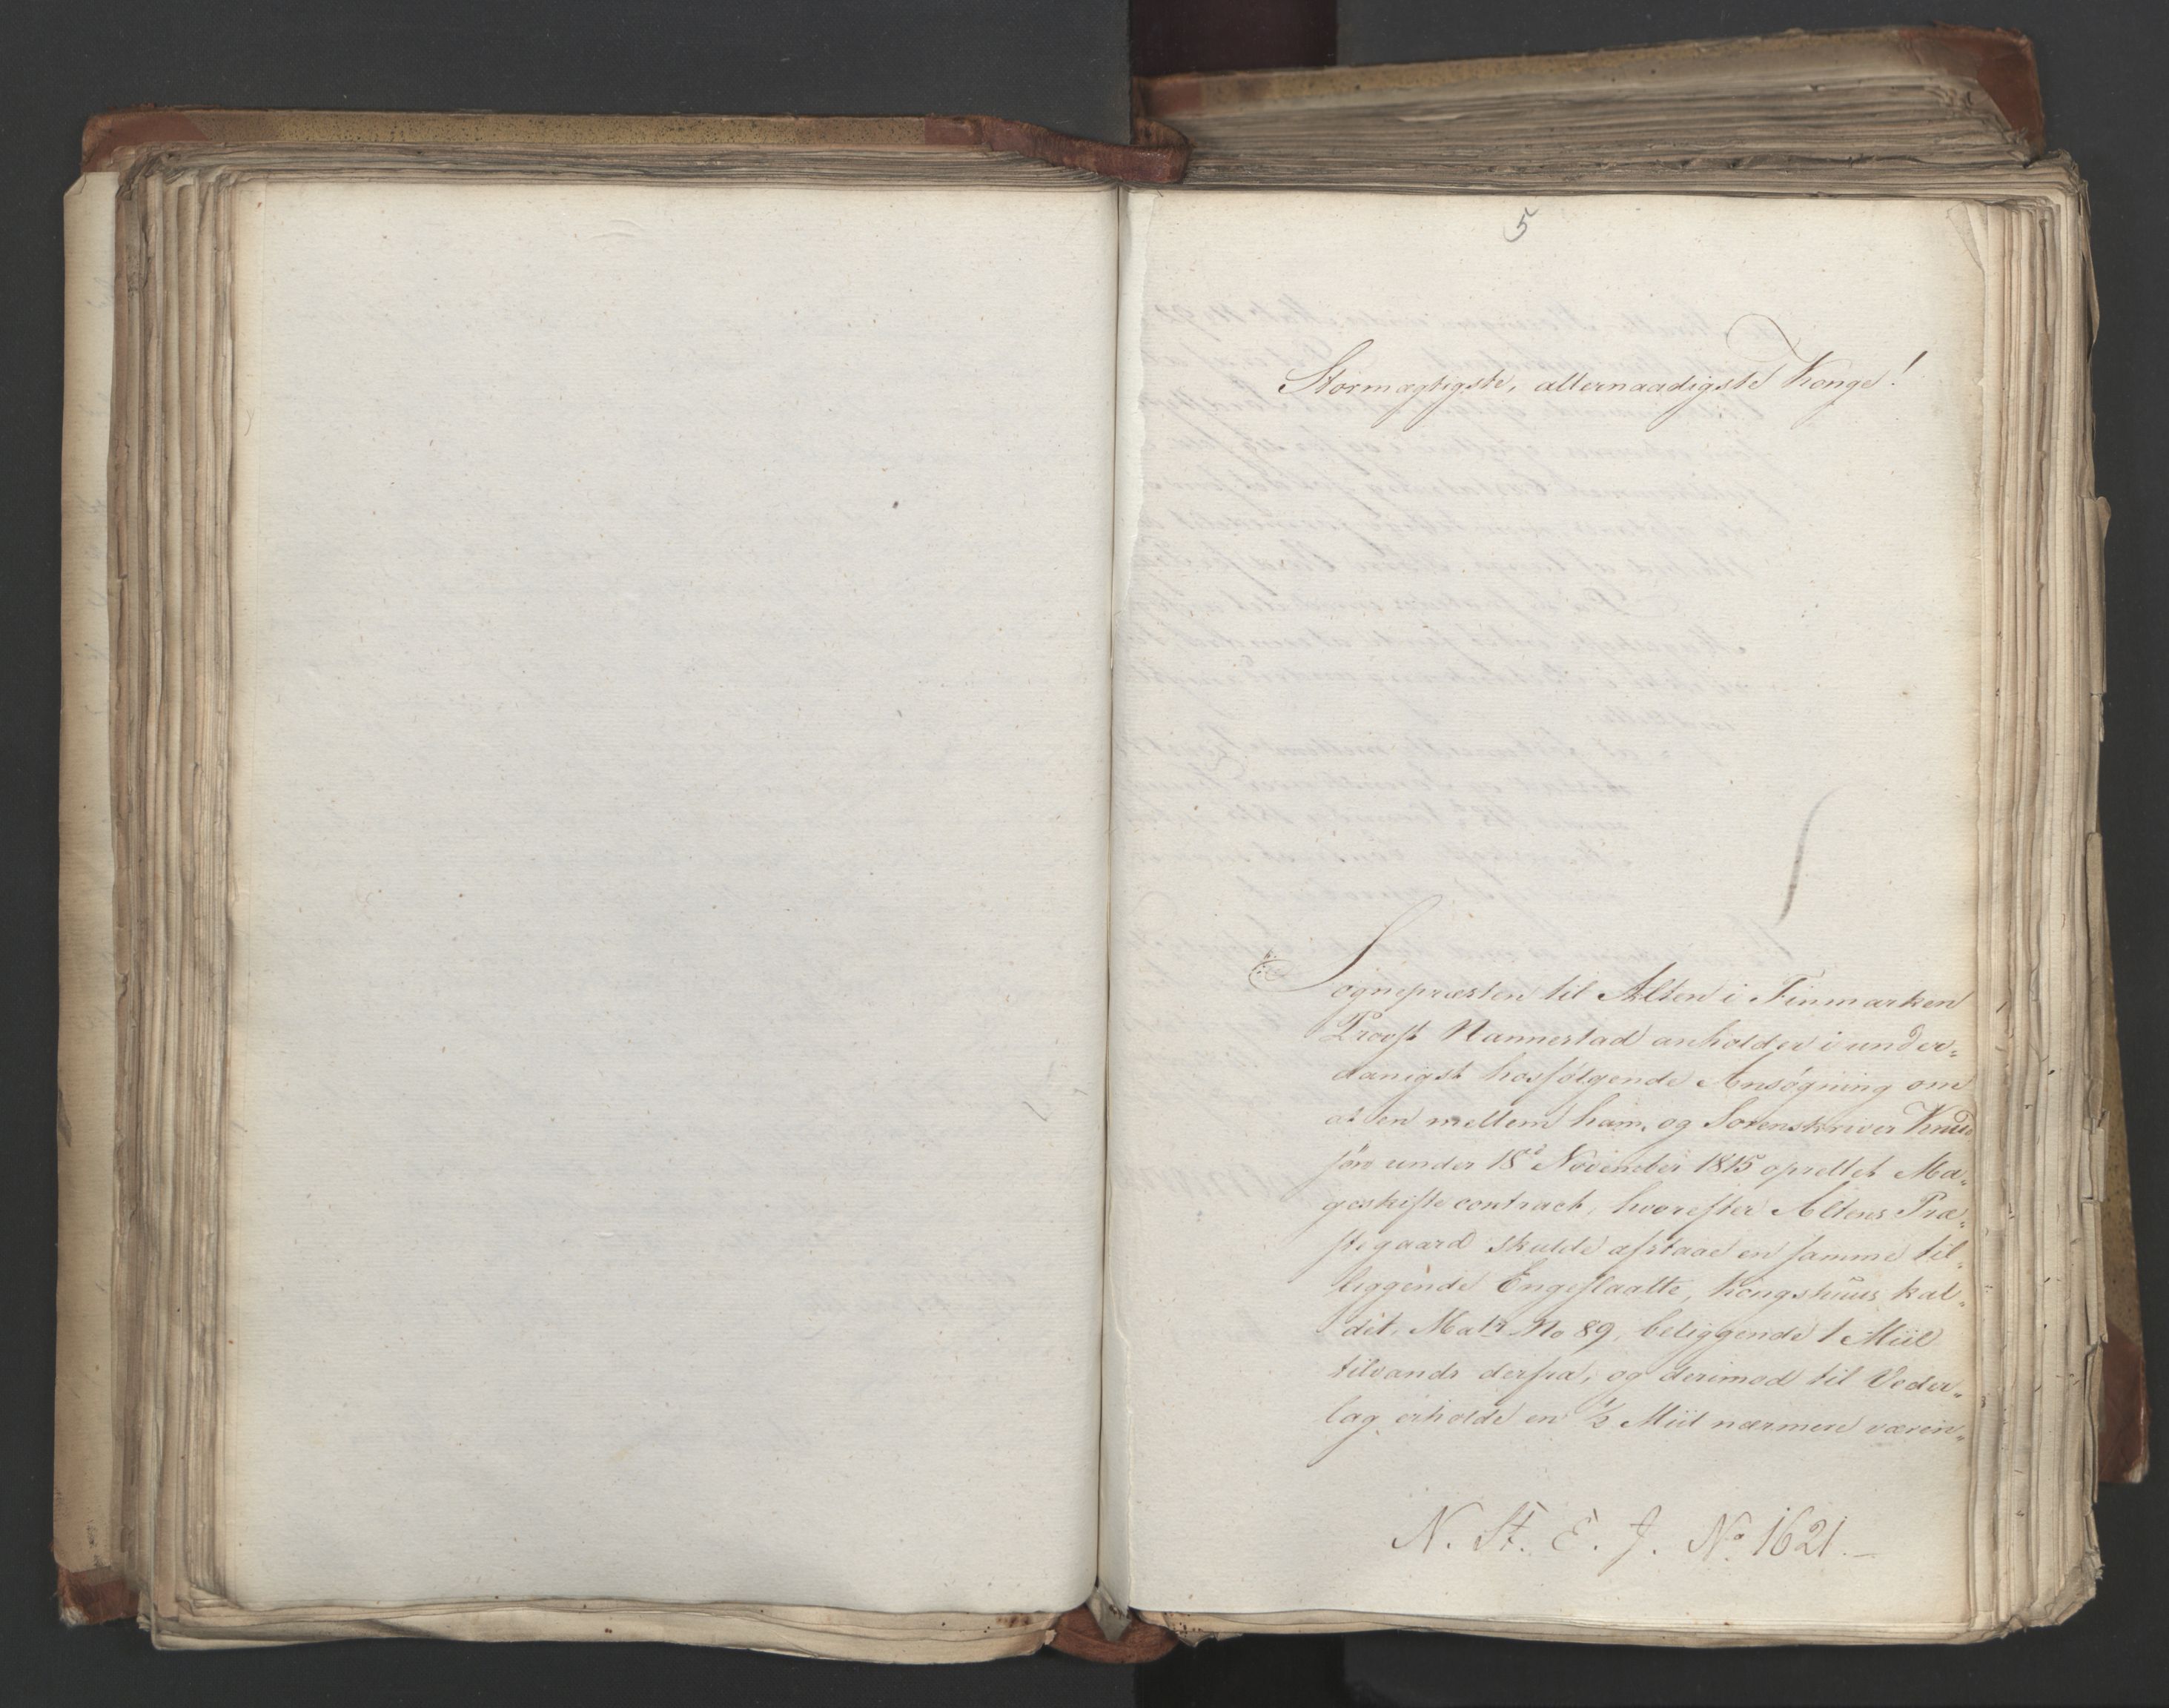 5
Stormægtigste, allernaadigste Konge!
Sognepræsten til Alten i Finmarken
Provst Nannestad anholder i under-
danigst hosfølgende Ansøgning om
at en mellem ham, og Sorenskriver Knud
søn under 18de November 1815 oprettet Ma-
geskifte contract, hvorefter Altens Præ-
stegaard skulde afstaae en samme til-
liggende Engeslaatte, Kongshuus kal-
det, Matr No 89, beliggende 1 Miil
tilvands derfra, og derimod til Veder-
lag erholde en 1/2 Miil nærmere væren-
N. St. E. J. No. 1621.-